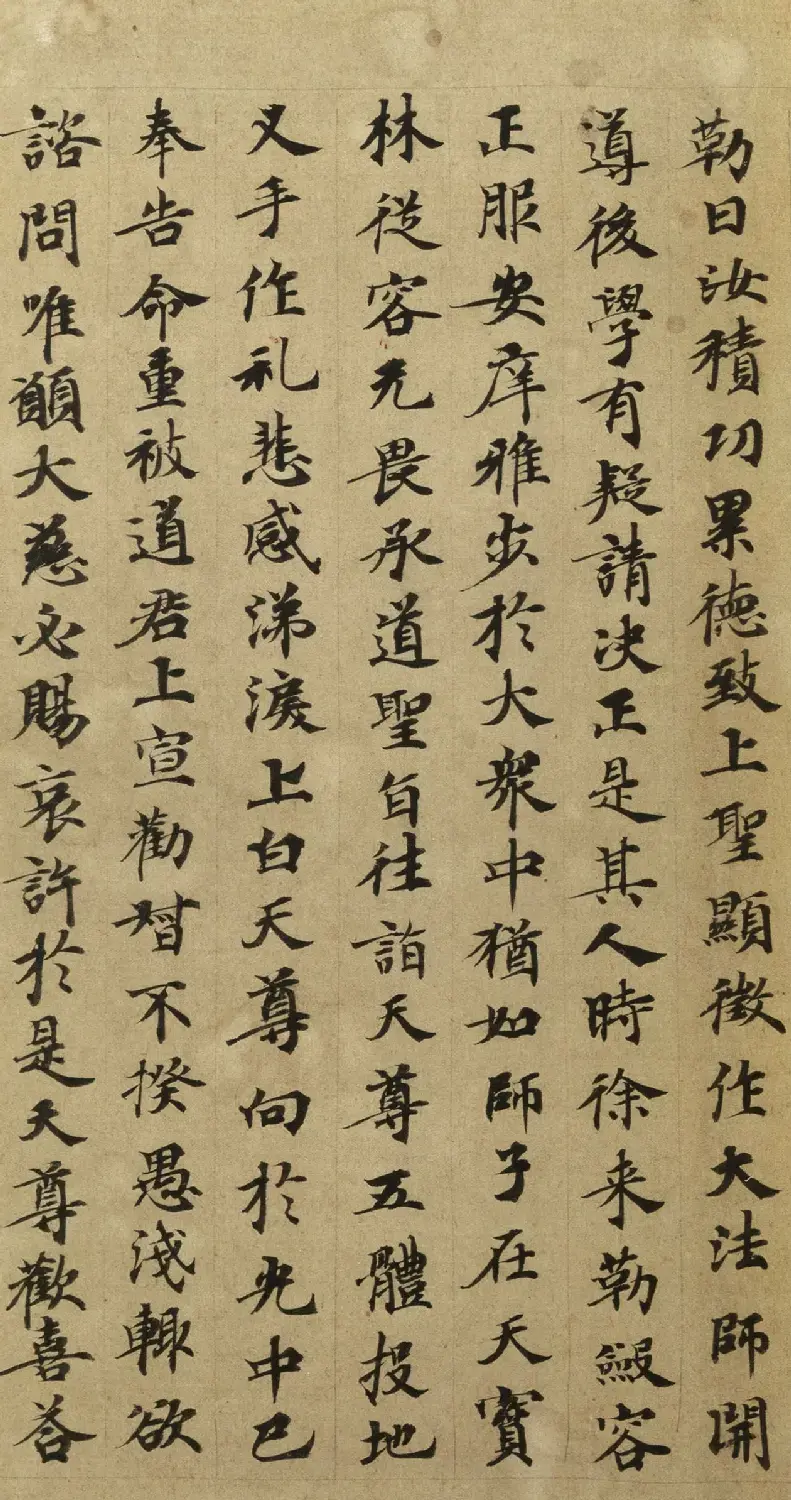 勒曰汝積功累德致上聖顯徵作大法師開
導後學有疑請決正是其人時徐来勒斂容
正服安庠雅步於大衆中猶如師子在天寳
林從容无畏承道聖旨往詣天尊五體投地
叉手作礼悲感涕淚上白天尊向於光中已
奉告命重被道君上宣勸督不揆愚淺輙欲
諮問唯願大慈必賜哀許於是天尊歡喜荅